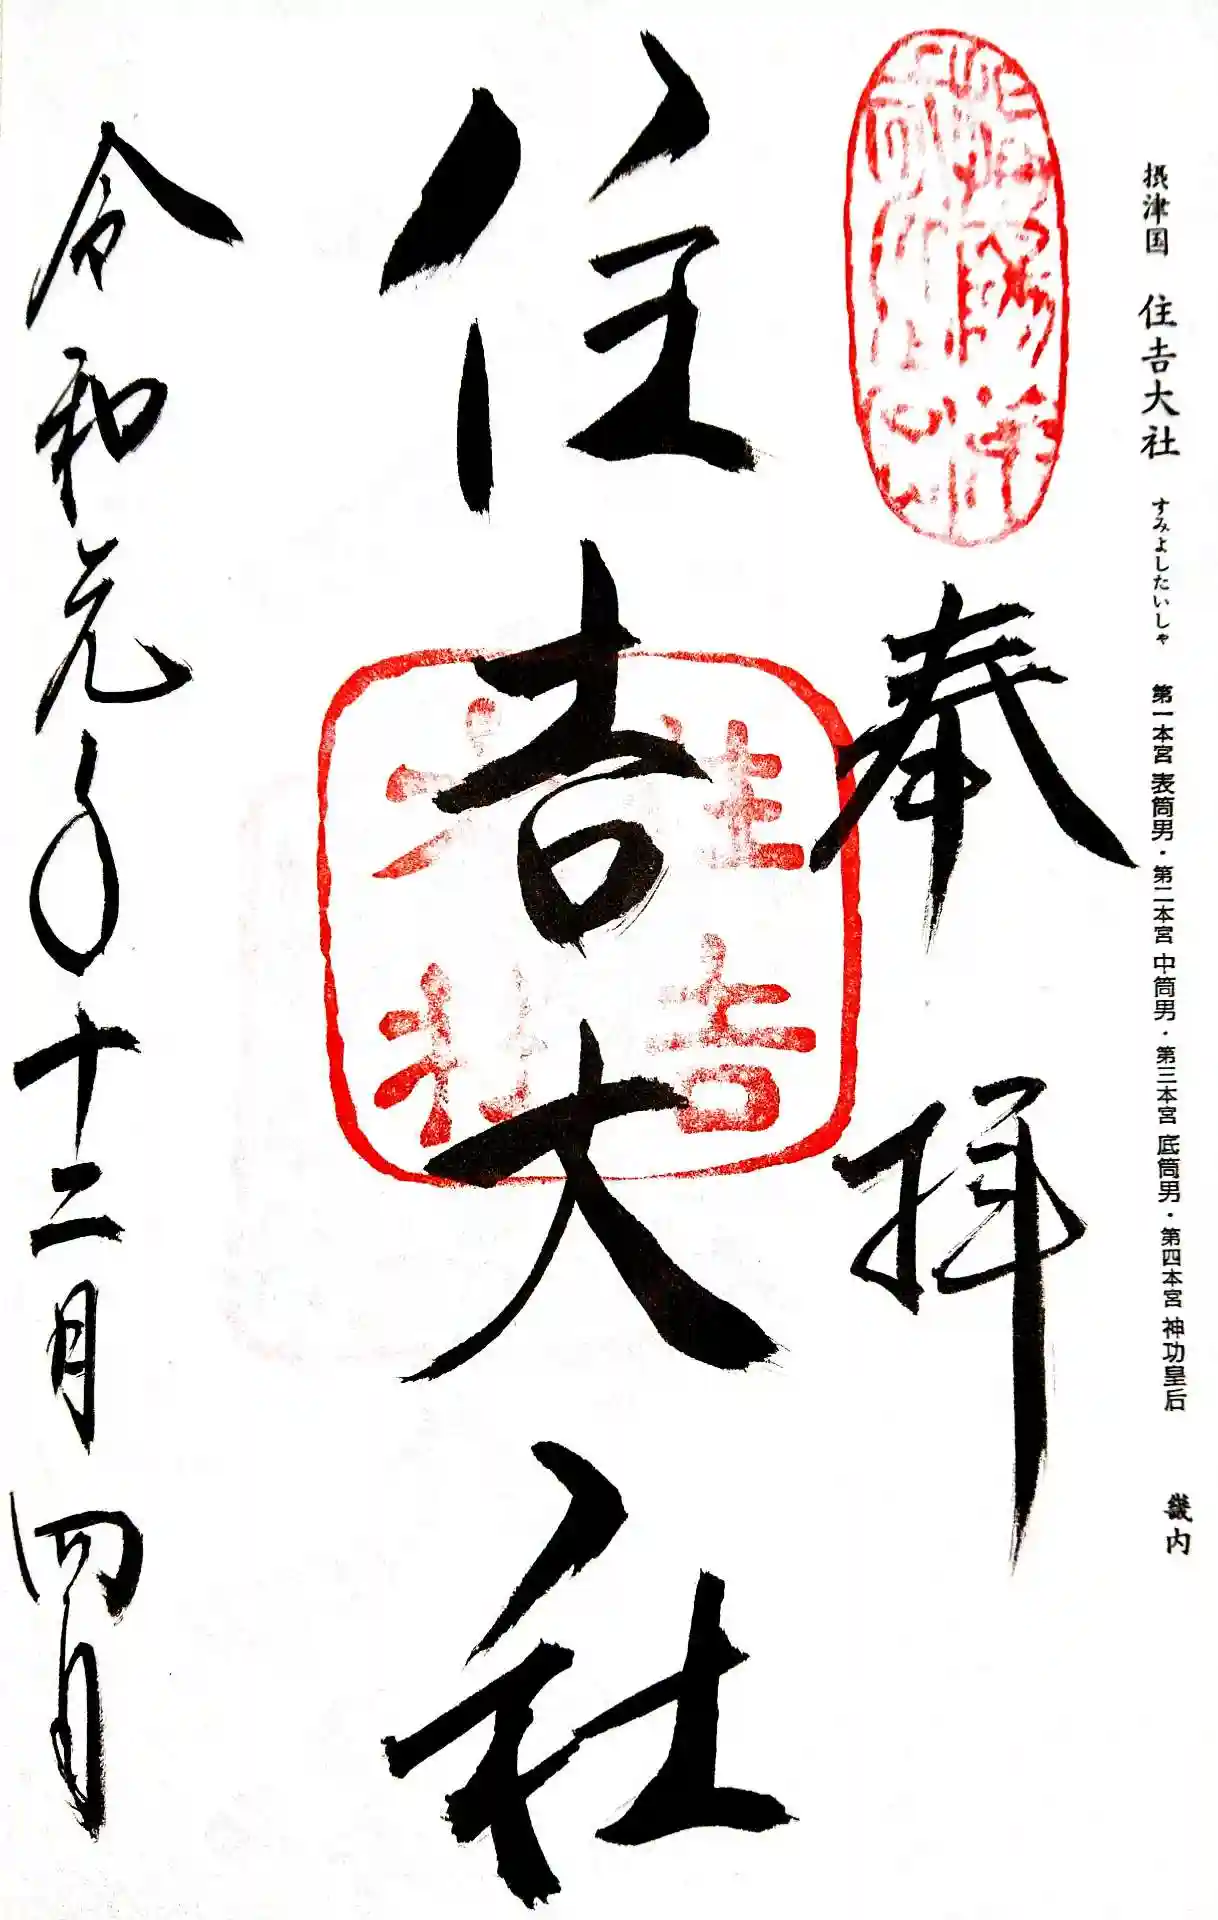 摂津国 住吉大社 すみよしたいしゃ 第一本宮 表筒男・第二本宮 中筒男・第三本宮 底筒男・第四本宮 神功皇后 畿内
奉拝
住吉大社
住吉
大社
令和元年十二月四日